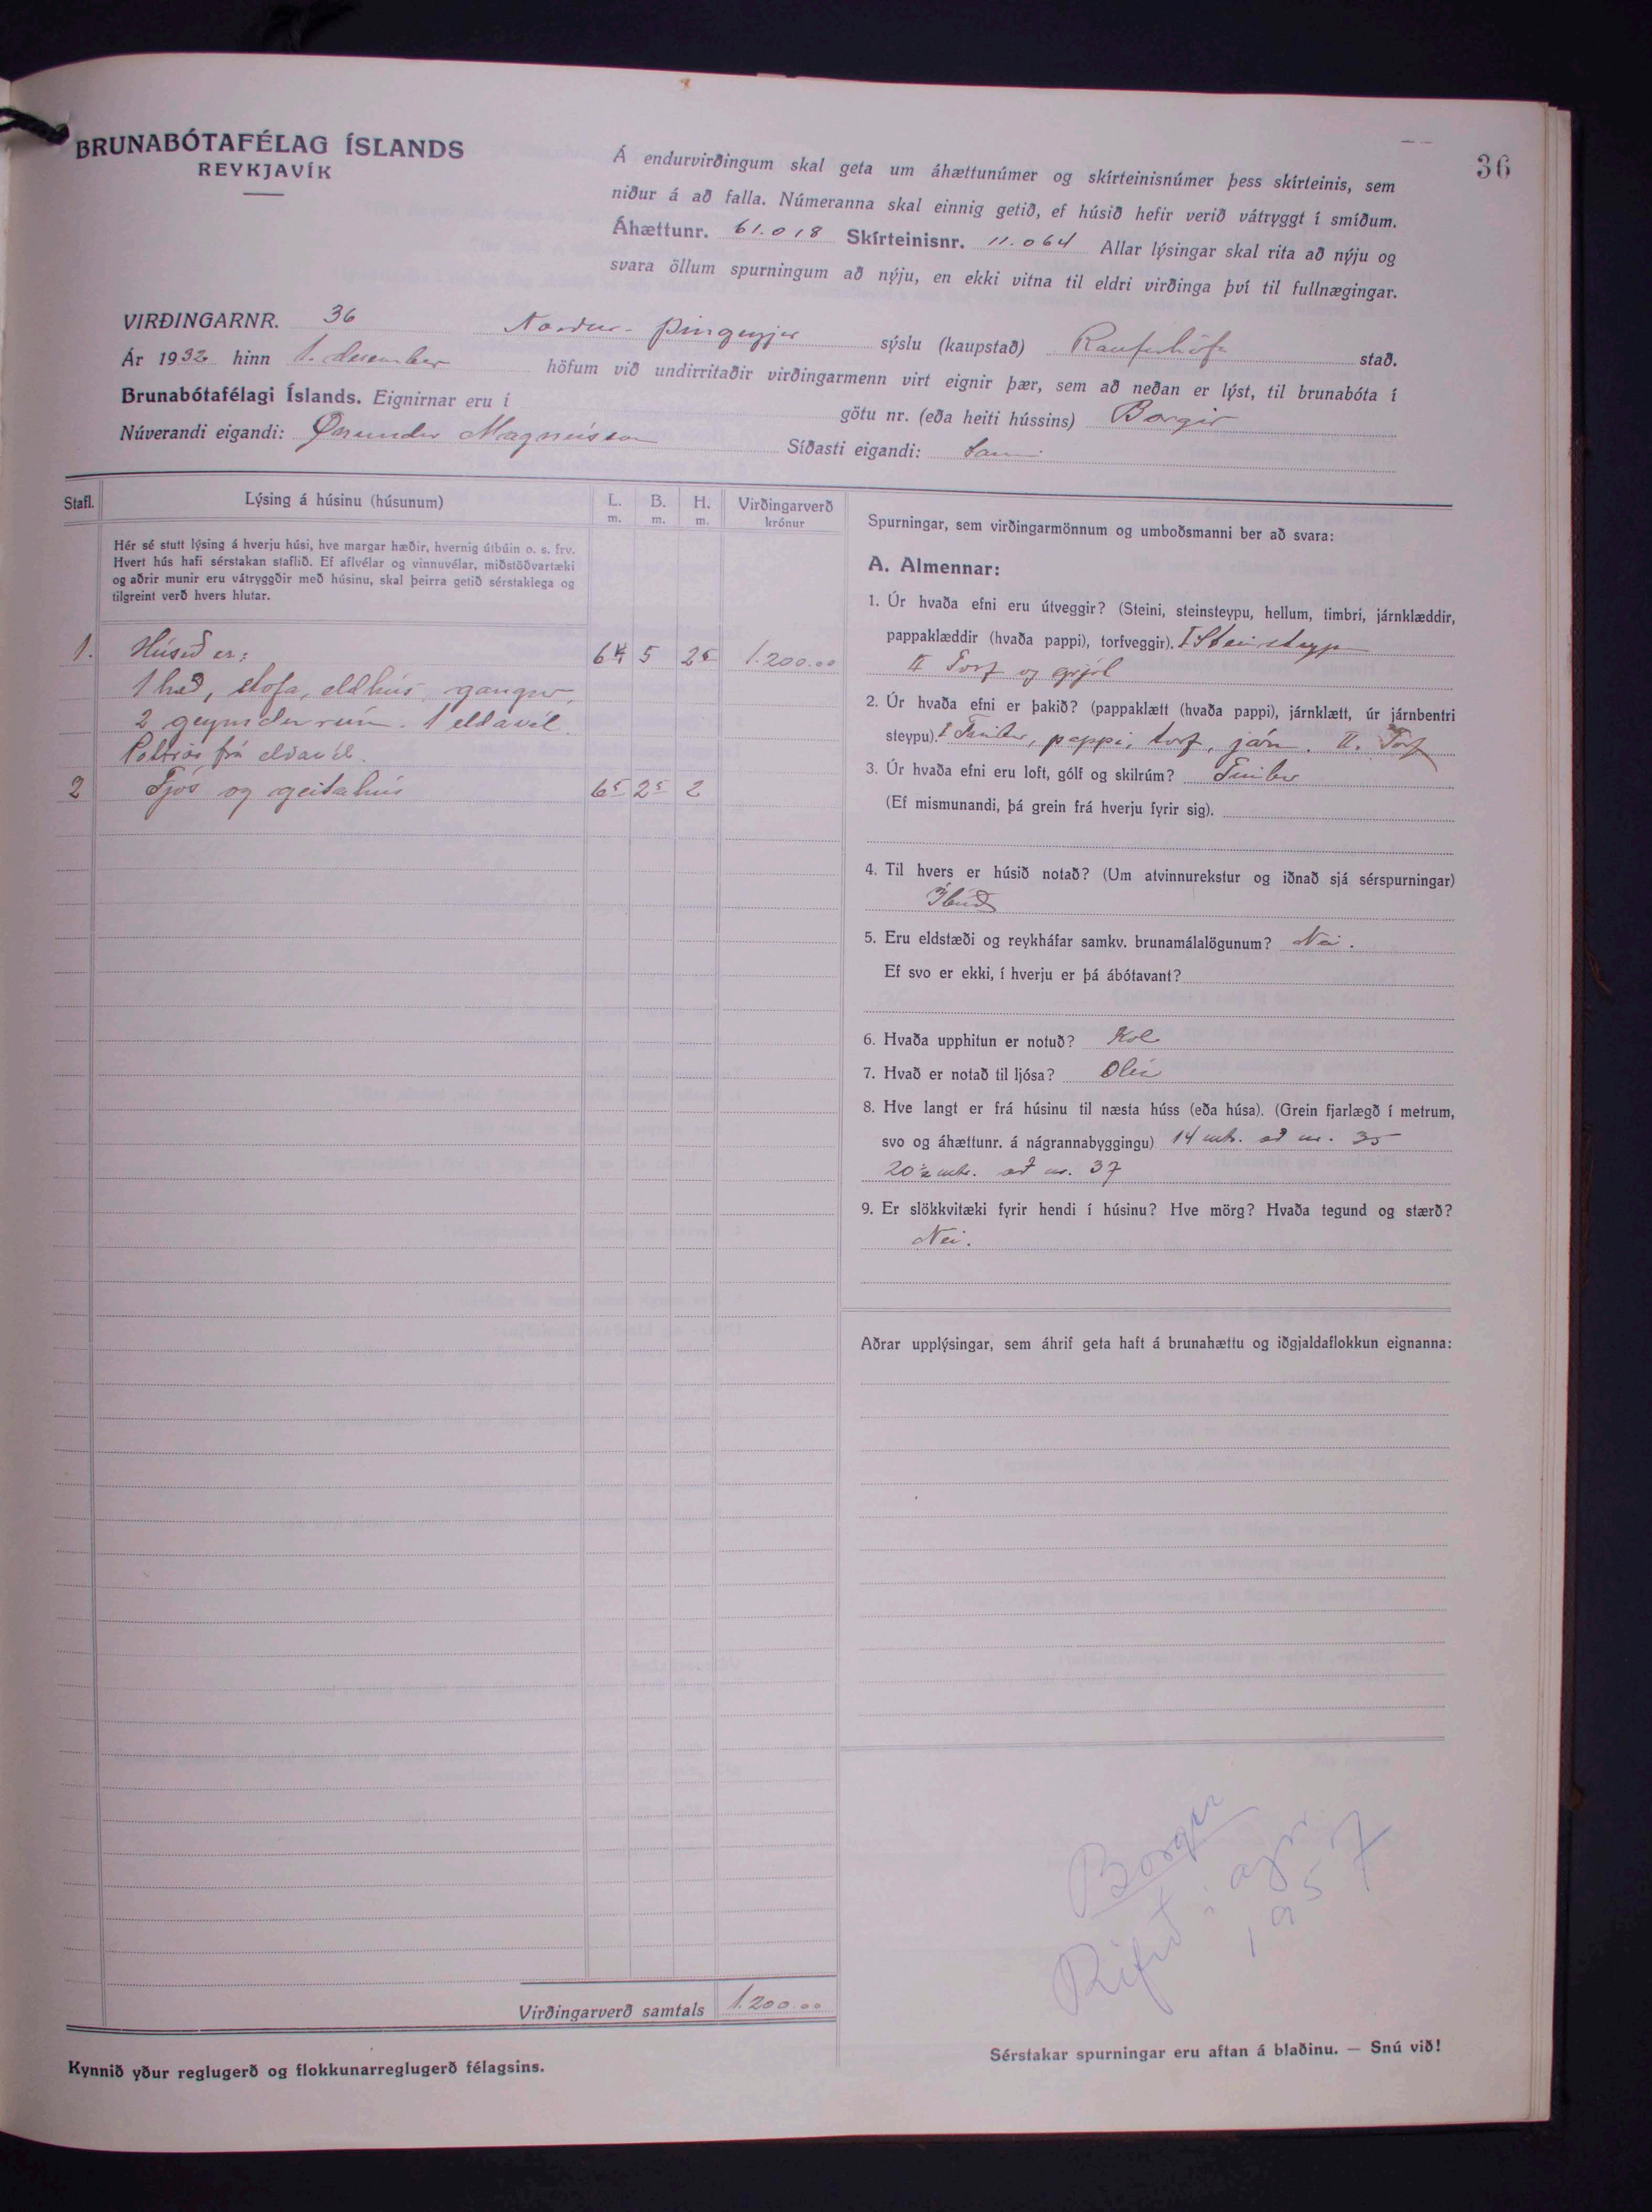 BRUNABÓTAFÉLAG ÍSLANDS
REYKJAVÍK
36
Á endurvirðingum skal geta um áhættunúmer og skírteinisnúmer þess skírteinis, sem
niður á að falla. Númeranna skal einnig getið, ef húsið hefir verið vátryggt í smíðum.
Áhættunr. 61.018 Skírteinisnr. 11.064 Allar lýsingar skal rita að nýju og
svara öllum spurningum að nýju, en ekki vitna til eldri virðinga því til fullnægingar.
VIRÐINGARNR. 36 Norður-Þingeyjar sýslu (kaupstað) Raufarhöfn stað.
Ár 1932 hinn 1. desember höfum við undirritaðir virðingarmenn virt eignir þær, sem að neðan er lýst, til brunabóta í
Brunabótafélagi Íslands. Eignirnar eru í götu nr. (eða heiti hússins) Borgir
Núverandi eigandi: Magnússon Síðasti eigandi: Sami
Stafl. Lýsing á húsinu (húsunum) L. m. B. m. H. m. Virðingarverð krónur
Hér sé stutt lýsing á hverju húsi, hve margar hæðir, hvernig útbúin o. s. frv.
Hvert hús hafi sérstakan staflið. Ef aflvélar og vinnuvélar, miðstöðvartæki
og aðrir munir eru vátryggðir með húsinu, skal þeirra getið sérstaklega og
tilgreint verð hvers hlutar.
1. Húsið er: 6⁴ 5 2⁵ 1.200.00
1 hæð, stofa, eldhús, gangur,
2 geymslurúm. 1 eldavél.
frá eldavél.
2 Fjós og geitahús 6⁵ 2⁵ 2
Virðingarverð samtals 1.200.00
Kynnið yður reglugerð og flokkunarreglugerð félagsins.
Spurningar, sem virðingarmönnum og umboðsmanni ber að svara:
A. Almennar:
1. Úr hvaða efni eru útveggir? (Steini, steinsteypu, hellum, timbri, járnklæddir,
pappaklæddir (hvaða pappi), torfveggir). I Steinsteypa
II Torf og grjót
2. Úr hvaða efni er þakið? (pappaklætt (hvaða pappi), járnklætt, úr járnbentri
steypu). I Timbur, pappi, torf, járn. II. Torf
3. Úr hvaða efni eru loft, gólf og skilrúm? Timbur
(Ef mismunandi, þá grein frá hverju fyrir sig).
4. Til hvers er húsið notað? (Um atvinnurekstur og iðnað sjá sérspurningar)
Íbúð
5. Eru eldstæði og reykháfar samkv. brunamálalögunum? Nei.
Ef svo er ekki, í hverju er þá ábótavant?
6. Hvaða upphitun er notuð? Kol
7. Hvað er notað til ljósa? Olía
8. Hve langt er frá húsinu til næsta húss (eða húsa). (Grein fjarlægð í metrum,
svo og áhættunr. á nágrannabyggingu) 14 mtr. að nr. 35
20½ mtr. að nr. 37
9. Er slökkvitæki fyrir hendi í húsinu? Hve mörg? Hvaða tegund og stærð?
Nei.
Aðrar upplýsingar, sem áhrif geta haft á brunahættu og iðgjaldaflokkun eignanna:
Borgir
Rifið í
1957
Sérstakar spurningar eru aftan á blaðinu. — Snú við!